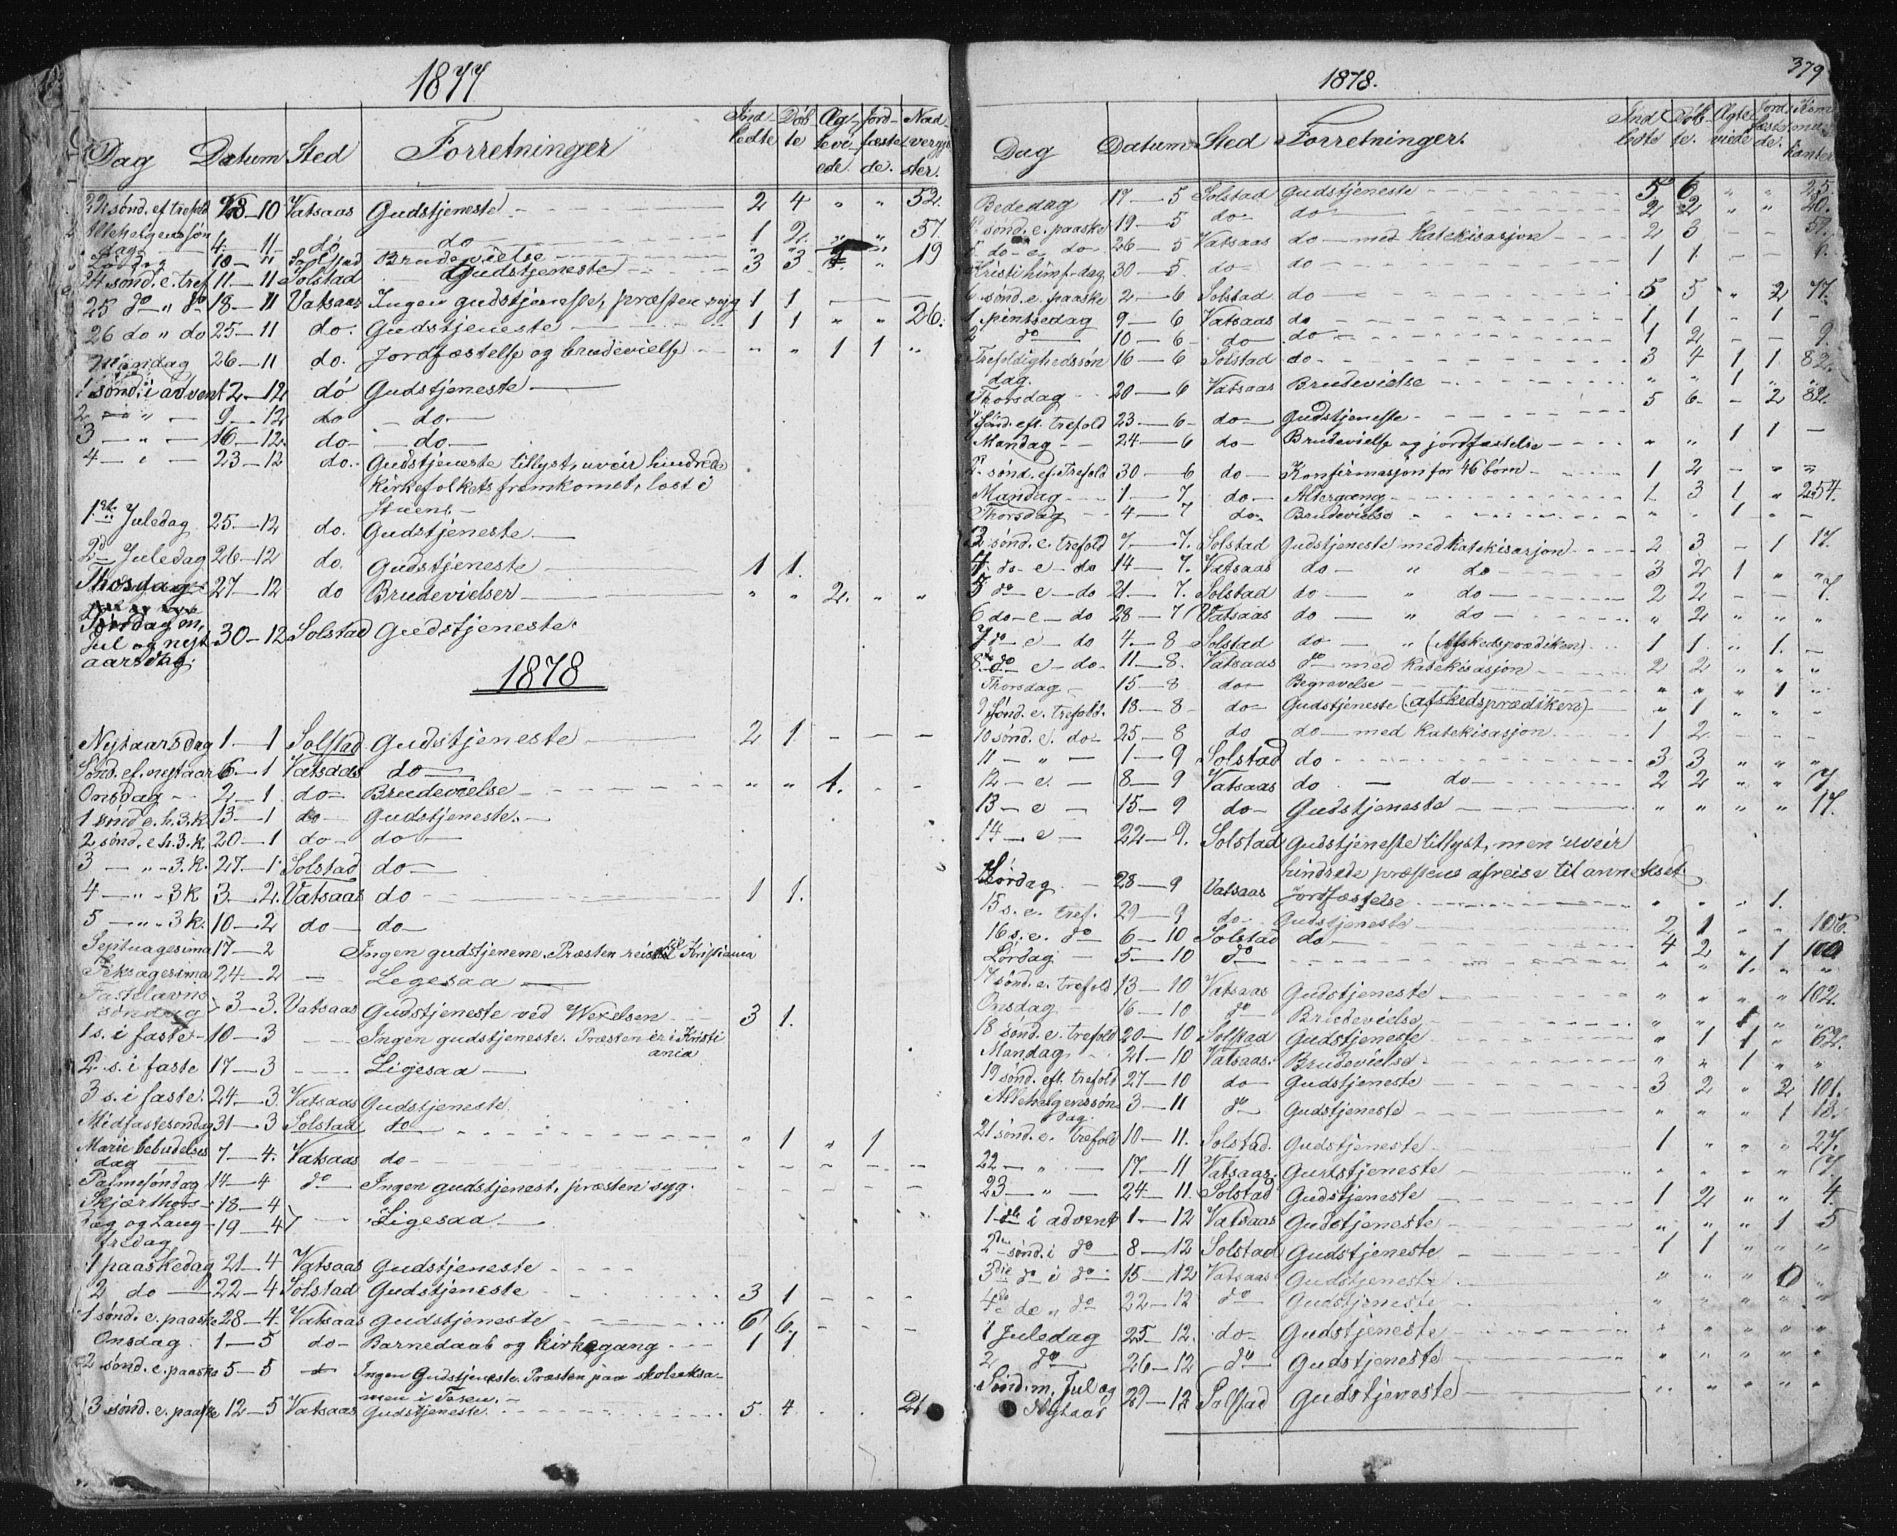 1877
Dag Datum Sted Forretninger Indledte Døbte Ægteviede Jordfæstede Nadvergjester.
22 sønd. ef trefold 28–10 Vatsaas Gudstjeneste 2 4 " " 52.
Allehelgens søndag 4–11 do do 1 2 " " 57.
10–11 Solstad Brudevielse
24 sønd. e. tref 11–11 Solstad Gudstjeneste 3 3 " 19
25 do " do 18–11 Vatsaas Ingen gudstjeneste, præsten syg 1 1 – – –
26 do " do 25–11 do. Gudstjeneste 1 1 " " 26.
Mandag 26–11 do. Jordfæstelse og brudevielse " " 1 1 "
1 sønd. i advent 2–12 do Gudstjeneste
2 – " – 9–12 do – do –
3 – " – 16–12. do – – do –
4 – " – 23–12 do. Gudstjeneste tillyst, uveir hindrede
Kirkefolkets fremkomst, læst i
Stuen. –
1ste Juledag 25–12 do. Gudstjeneste. –
2den Juledag 26–12 do. Gudstjeneste 1 1.
Thorsdag 27–12 do Brudevielser " " 2. " "
Søndag m. 30–12 Solstad Gudstjeneste.
Jul og nyt
aarsdag.
1878
Nytaarsdag 1–1 Solstad Gudstjeneste 2 1. – – –
Sønd. ef. nytaar 6–1 Vatsaas do –
Onsdag 2–1. do – Brudevielse " " 1. – –
1 sønd e. h. 3. k. 13–1 do Gudstjeneste. –
2 sønd. e h. 3. k. 20–1 do – do –
3 – " – 3. k. 27–1 Solstad do –
4 – " – 3 k 3.–2. Vatsaas do – 1 1.
5 – " – 3 k. 10–2 do – do –
Septuagesima 17–2 Ingen gudstjenene. Præsten reist til Kristiania
Seksagesima 24–2 – Ligesaa –
Fastelavns
søndag 3–3. Vatsaas Gudstjeneste ved Wexelsen 3 1.
1 s. i faste – 10–3 Ingen gudstjeneste. Præsten er i Kristi
ania
2. s. i faste 17–3 Ligesaa –
3 s. i faste. 24–3. Vatsaas Gudstjeneste
Midfastesøndag 31–3 Solstad do
Marie bebudelses
dag 7–4. Vatsaas do – " 1 " 1
Palmesøndag 14–4 do – Ingen gudstjenest, præsten syg.
Skjærthors – 18–4
dag og Lang – 19–4 Ligesaa –
fredag
1 paaskedag 21–4 Vatsaas Gudstjeneste
2 do – 22–4 Solstad Gudstjeneste 3 1 – – –
1 sønd. e. paaske 28–4. Vatsaas Gudstjeneste 6 6 – – –
Onsdag 1–5 do – Barnedaab og kirkegang 1 1
2 sønd. e. paaske 5–5 Ingen Gudstjeneste. Præsten paa skoleeksa-
men i
3 sønd. e. paaske 12–5 Vatsaas Gudstjeneste. 5. 4
1878.
379
Dag Datum Sted Forretninger. Indledte Døbte. Ægteviede Jordfæstede. Kommunikanter
Bededag 17–5 Solstad Gudstjeneste 5 6 " " 25.
sønd. e. paaske 19–5 do – do – 2 2 " " 20.
do – e. do – 26–5 Vatsaas do – med Katekisasjon 2 3 – –
Kristi himf. dag 30–5. do – do – 1 1. – –
6 sønd. e. paaske 2–6 Solstad do 5 5 " 2 77.
1 pintsedag 9–6 Vatsaas do – 1 1 " 1 –
2 do 10–6 – do – do – 1 2 – – 9.
Trefoldighedssøn
dag. 16–6 Solstad do – 3 4 1 1. 82.
Thorsdag 20–6 Vatsaas Brudevielse " " 1 " "
1 Sønd. eft. trefold 23–6 – do – Gudstjeneste 5 6 – 2 82.
Mandag 24–6 do – Brudevielse og jordfæstelse " " 1 1 –
2. sønd. ef. Trefold 30–6 do – Konfirmasjon for 46 børn 1 2 – " "
Mandag 1–7. do – Altergang 1. 3 1. " 254.
Thorsdag 4–7 do – Brudevielse " " 1 " –
3 sønd. e. trefold 7–7. Solstad Gudstjeneste med katekisasjon 2 3 – 1 17.
4. do – e – do 14–7. Vatsaas do – " do – 3 2 1 " "
5 do – e – do 21–7. Solstad do – " do – 2 2 – – 7.
6 do – e – do 28–7 Vatsaas do – " do – " 2 " " "
7 do – e – do 4–8 Solstad do – " (Afskedsprædiken) 1 1. " 1. –
8 do e – do. 11–8. Vatsaas do – med katekisasjon 2 2 " " "
Thorsdag 15–8 do – Begravelse " " " 1 "
9 Sønd. e. trefold. 18–8 – do – Gudstjeneste (afskedsprædiken) " 1 " " "
10 sønd. e. do – 25–8 do do – med Katekisasjon 1 2 – – –
11 – " – 1–9 Solstad do – 3 3 " " "
12 – e – 8–9 Vatsaas do – do – 2 2 " " 7.
13 – e – 15–9 do – Gudstjeneste " " " " 17.
14 – e – 22–9. Solstad Gudstjeneste tillyst, men uveir
hindrede præstens afreise til annekset
Lørdag 28–9 Vatsaas Jordfæstelse " " " 1.
15 s. e. tref. 29–9 do – Gudstjeneste 2 1 " " 106.
16 s. e. do 6–10 Solstad do – 4 2 " 1 100
Lørdag 5–10 do " " 1. " "
17 sønd. e. trefold 13–10 Vatsaas Gudstjeneste " " " " 102.
Onsdag 16–10 do Brudevielse " " 1 " "
18 sønd. e. trefold 20–10 Solstad Gudstjeneste " 1 1 " 62.
Mandag 21–10 Vatsaas. Brudevielse " " 1 " "
19 sønd. eft. trefold 27–10 do – Gudstjeneste 3 2 " 2 101.
Allehelgenssøn
dag. 3–11 do Gudstjeneste " " " 1
21 sønd. e. trefold 10–11. Solstad. Gudstjeneste 1 " " " 27.
22 – " – 17–11 Vatsaas. Gudstjeneste " " " " 7.
23 – " – 24–11. Solstad Gudstjeneste 1 2 " " 4.
1ste i advent 1–12 Vatsaas Gudstjeneste " " " 1 5
2den sønd. i do 8–12 Solstad Gudstjeneste 1 1 " " "
3die do i do 15–12 Vatsaas Gudstjeneste " " " 0 "
4de do " do 22–12 do Gudstjeneste " " " " "
1 Juledag 25–12. do – Gudstjeneste " " " " "
2 do 26–12 do Gudstjeneste " " " " "
Sønd m. Jul og
Nytaar 29–12 Solstad Gudstjeneste " " " " "